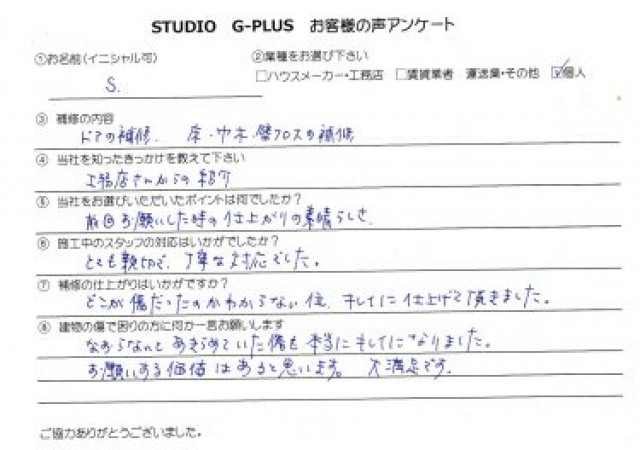 STUDIO G-PLUS お客様の声アンケート
①お名前(イニシャル可) ②業種をお選び下さい
S. □ハウスメーカー・工務店 □賃貸業者 運送業・その他 ☑個人
③ 補修の内容
ドアの補修. 床・巾木・壁クロスの補修
④ 当社を知ったきっかけを教えて下さい
工務店さんからの紹介
⑤ 当社をお選びいただいたポイントは何でしたか?
前回お願いした時の仕上がりの素晴らしさ.
⑥ 施工中のスタッフの対応はいかがでしたか?
とても親切で、丁寧な対応でした。
⑦ 補修の仕上がりはいかがですか?
どこが傷だったのかわからない位、キレイに仕上げて頂きました。
⑧ 建物の傷で困りの方に何か一言お願いします
なおらないと あきらめていた傷も 本当にキレイになりました。
お願いする価値はあると思います。 大満足です.
ご協力ありがとうございました。